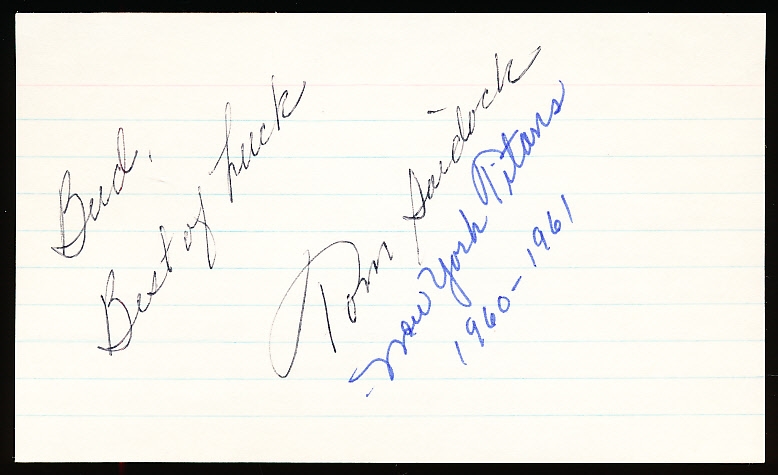 Bud,
Best of Luck
Tom Saidock
New York Titans
1960-1961